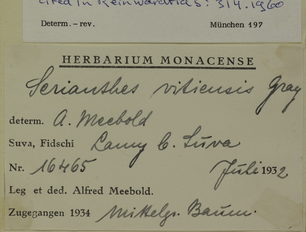 cited in Reinwardtia 5: 314. 1960
Determ. - rev. München 197
HERBARIUM MONACENSE
Serianthes vitiensis Gray
determ. A. Meebold
Suva, Fidschi Lamy b. Suva
Nr. 16465 Juli 1932
Leg et ded. Alfred Meebold.
Zugegangen 1934 Mittelgr. Baum.